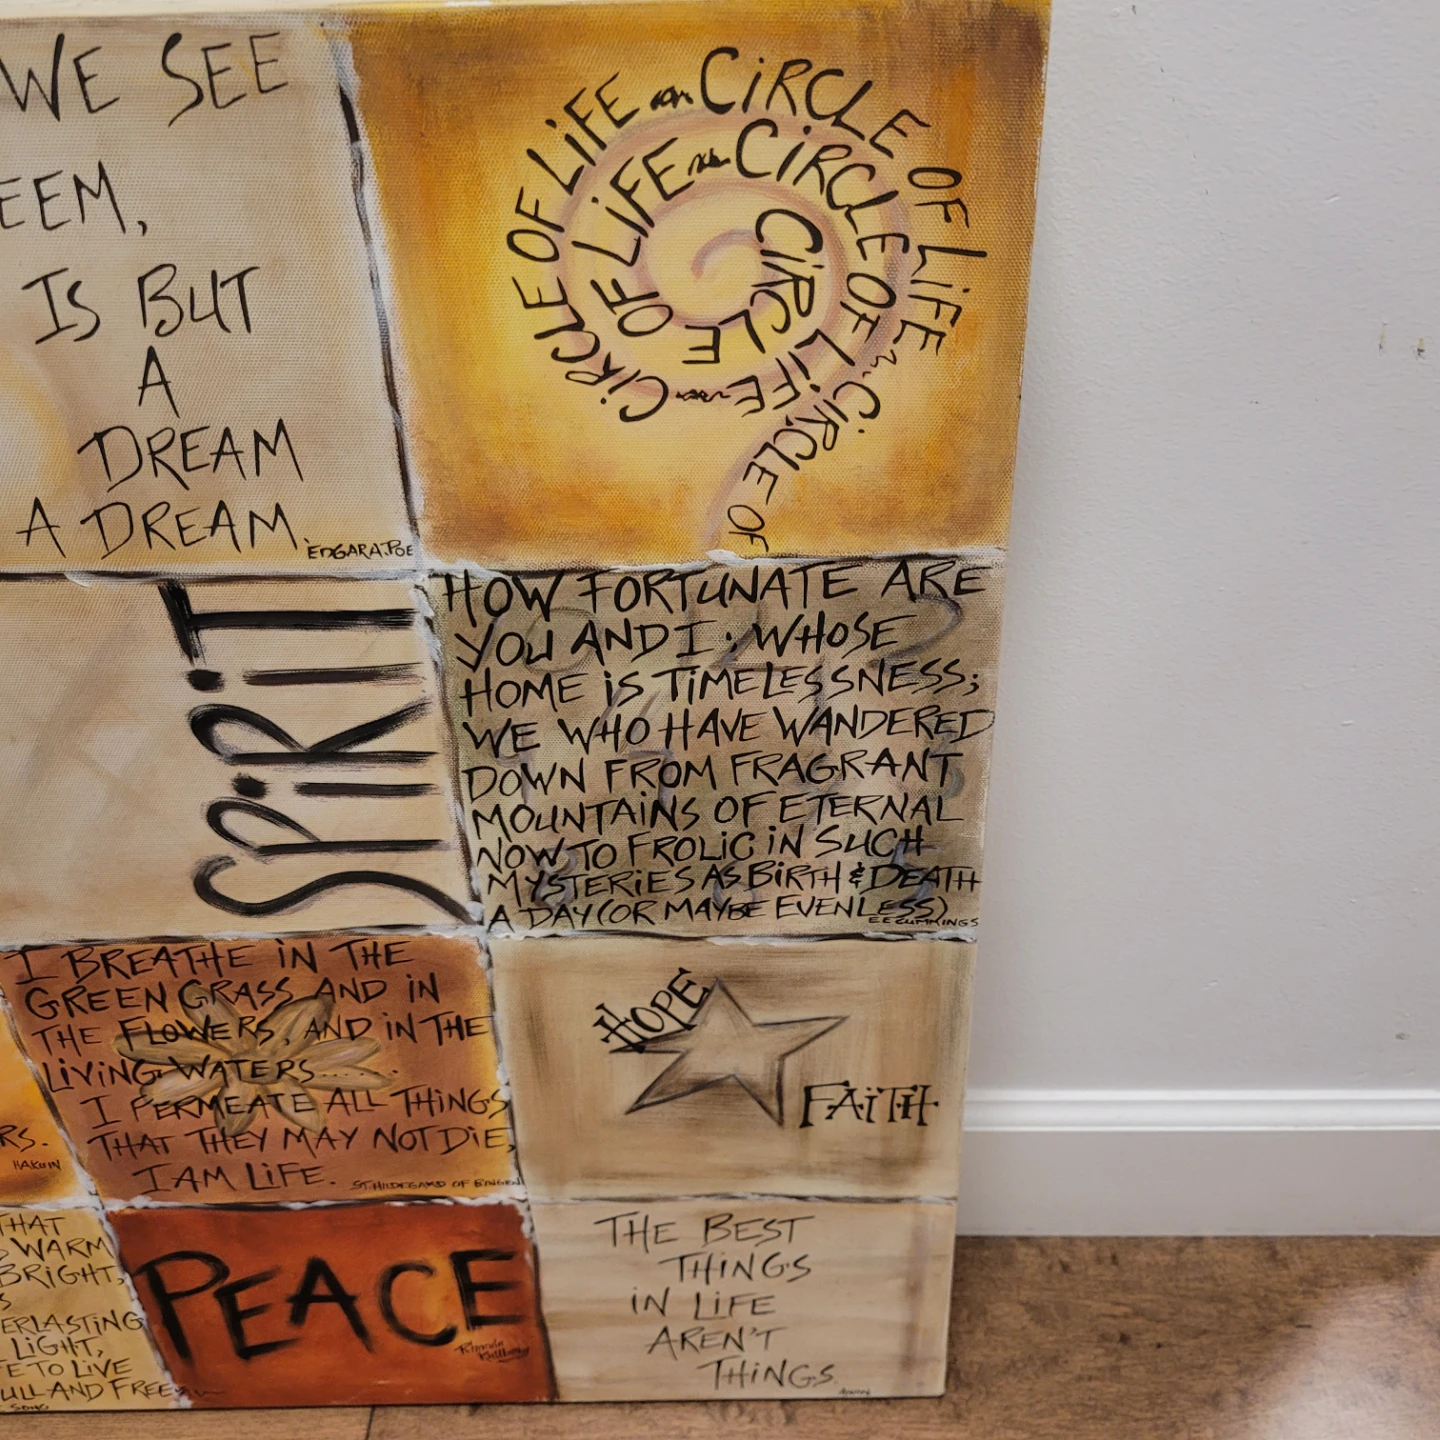 WE SEE
EEM,
IS BUT
A
DREAM
A DREAM.
EDGAR A. POE
CiRCLE OF LiFE CiRCLE OF LiFE CiRCLE OF LiFE CiRCLE OF LiFE CiRCLE OF LiFE CiRCLE OF
SPiRiT
HOW FORTUNATE ARE
YOU AND I; WHOSE
HOME iS TiMELESSNESS;
WE WHO HAVE WANDERED
DOWN FROM FRAGRANT
MOUNTAiNS OF ETERNAL
NOW TO FROLiC iN SUCH
MYSTERiES AS BiRTH & DEATH
A DAY (OR MAYBE EVEN LESS)
EE CUMMINGS
I BREATHE iN THE
GREEN GRASS AND iN
THE FLOWERS, AND iN THE
LiViNG WATERS......
I PERMEATE ALL THiNGS
THAT THEY MAY NOT DiE,
I AM LiFE.
ST. HILDEGARD OF BINGEN
HOPE
FAiTH
RS.
HAKUIN
THAT
WARM
BRiGHT,
S
ERLASTiNG
LiGHT,
FE TO LiVE
ULL AND FREE
SONG
PEACE
THE BEST
THiNGS
iN LiFE
AREN'T
THiNGS